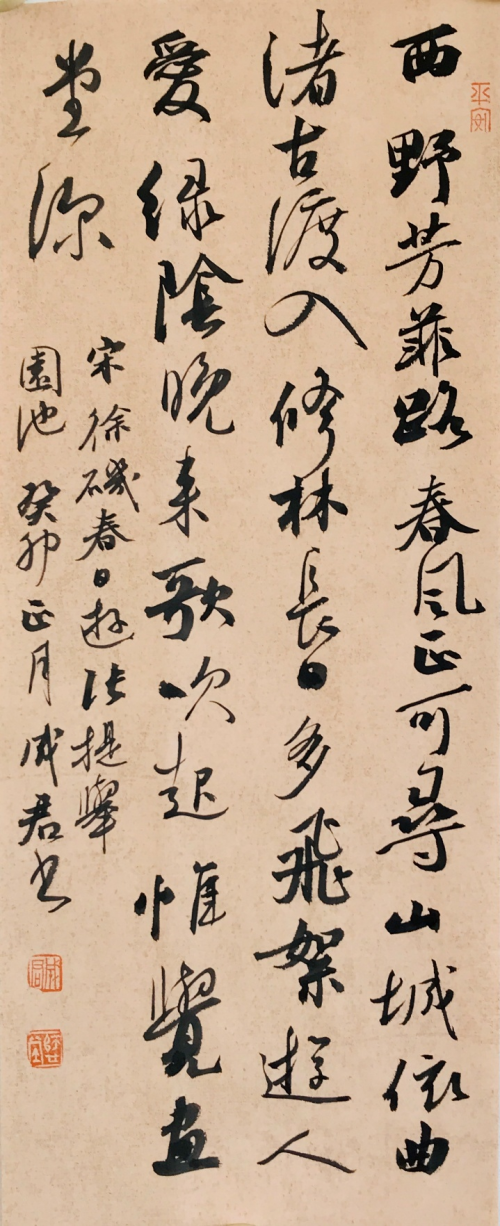 西野芳菲路春风正可尋山城依曲
渚古渡入修林長日多飛絮遊人
愛緑陰晚来歌吹起惟覺畫
堂深
宋徐磯春日遊张提舉
園池癸卯正月君书
平安